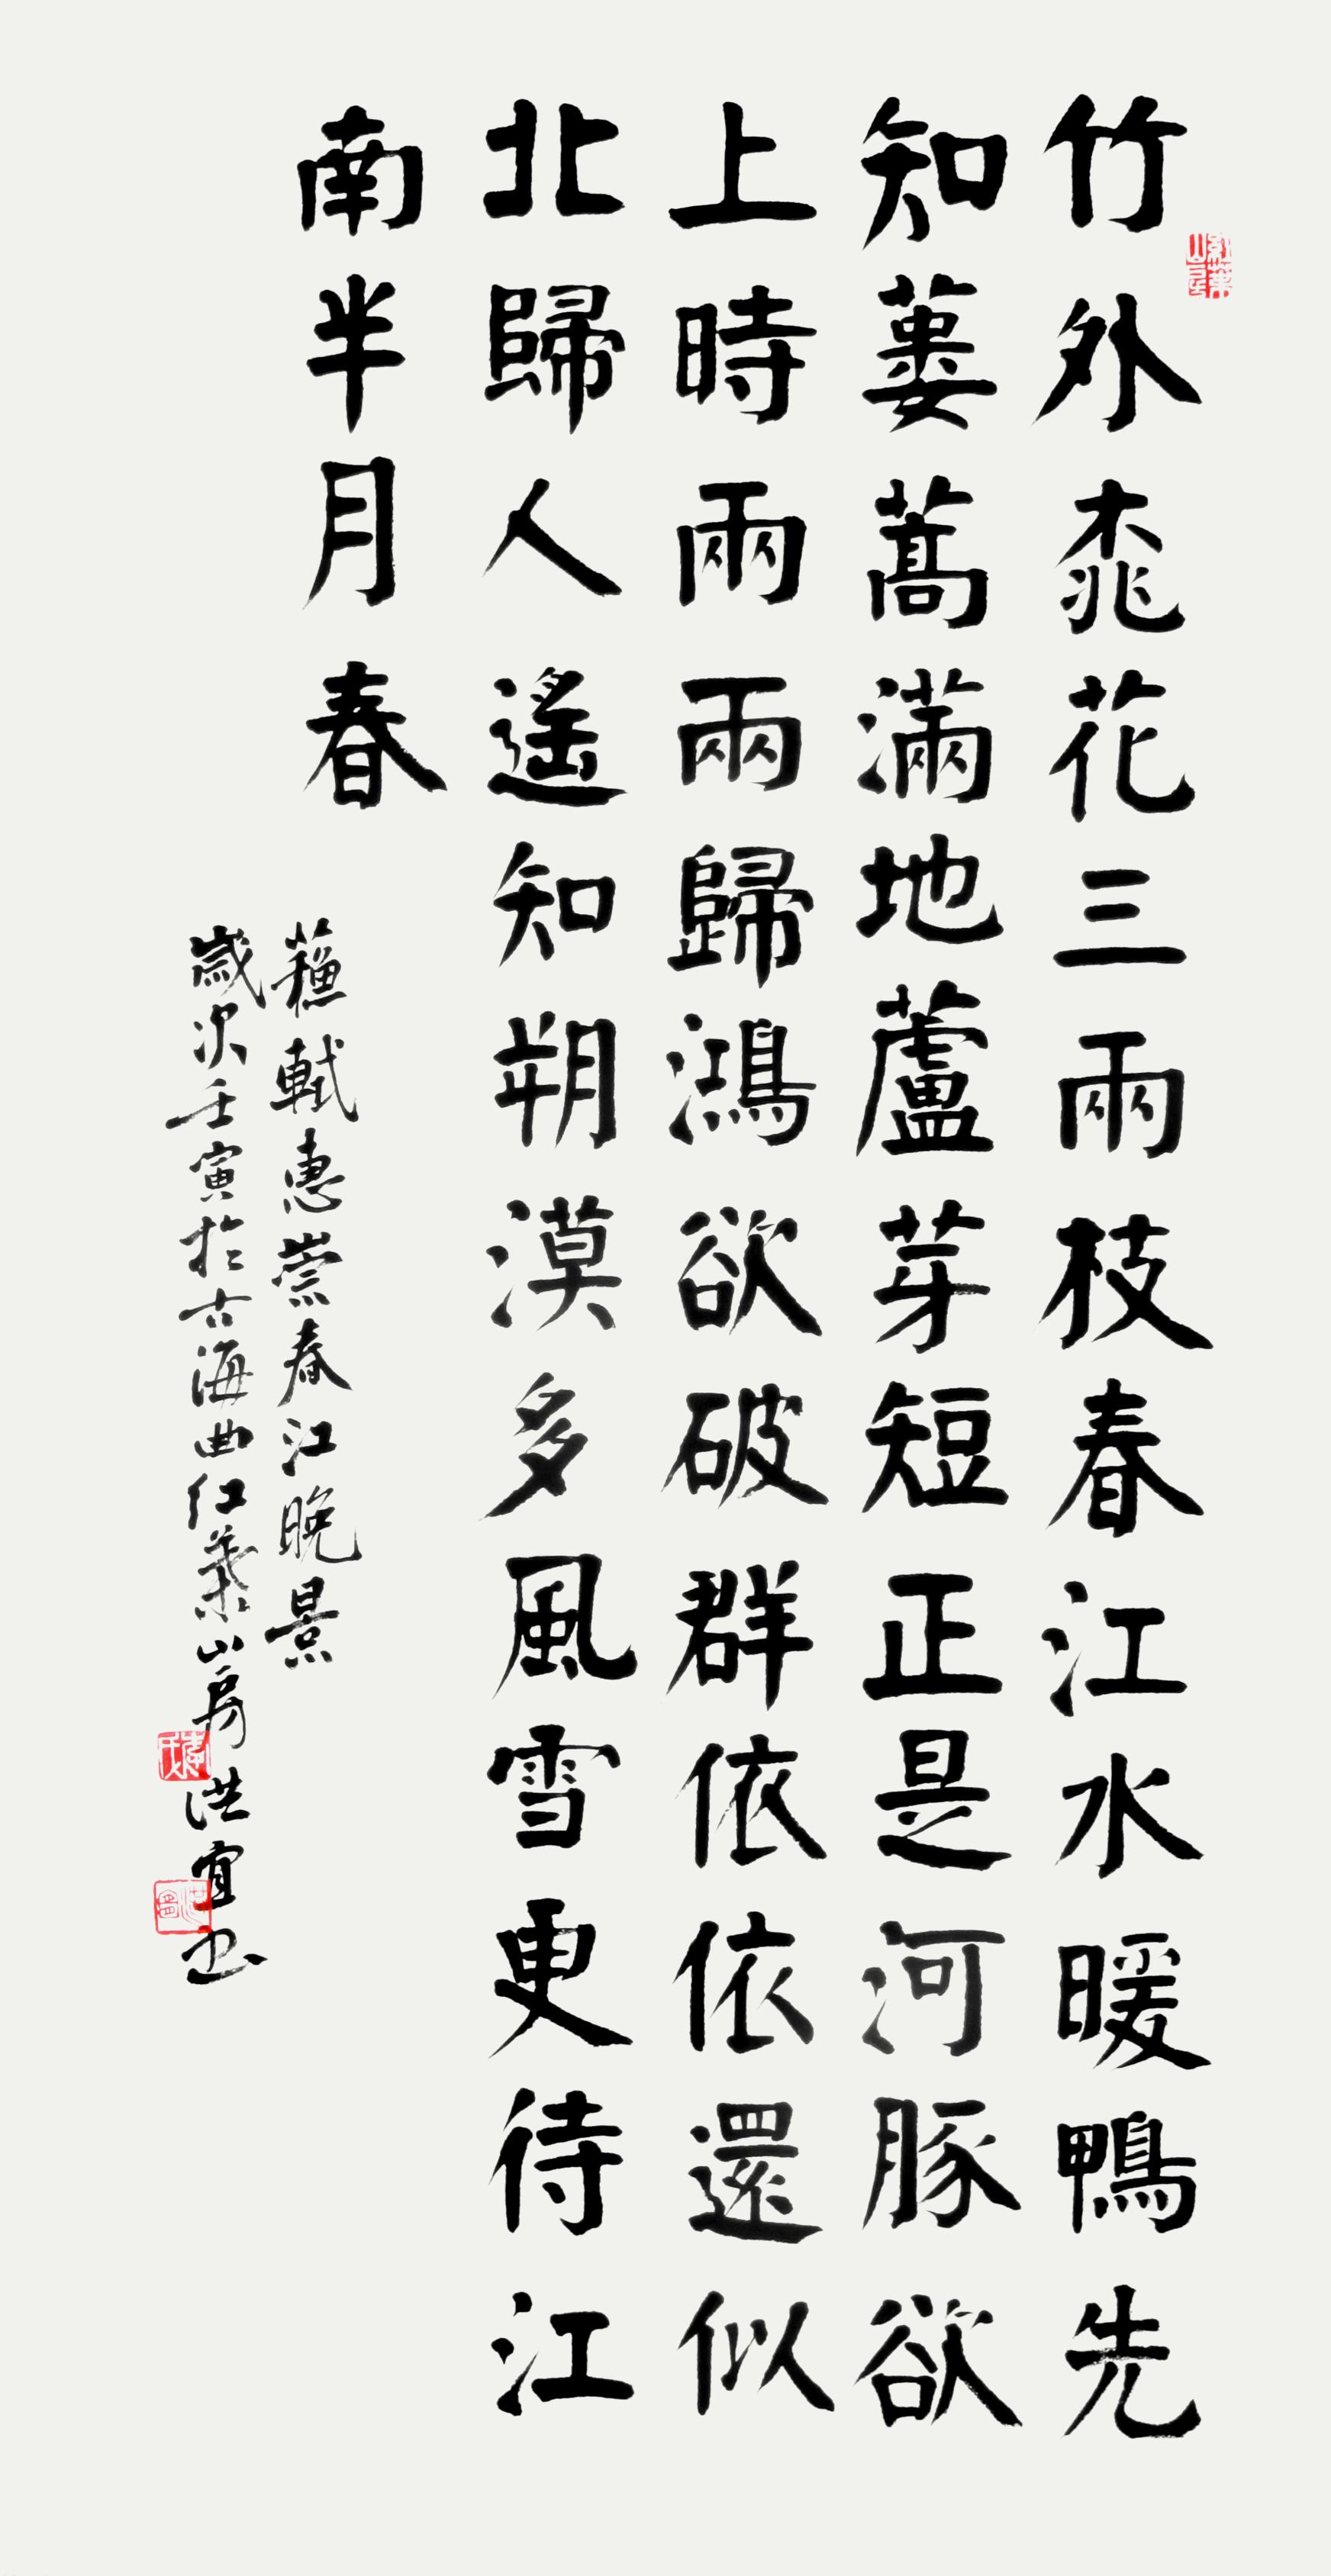 竹外桃花三兩枝春江水暖鴨先
知蔞蒿滿地蘆芽短正是河豚欲
上時兩兩歸鴻欲破群依依還似
北歸人遙知朔漠多風雪更待江
南半月春
蘇軾惠崇春江晚景
歲次壬寅於古海曲红葉山房洪宜书